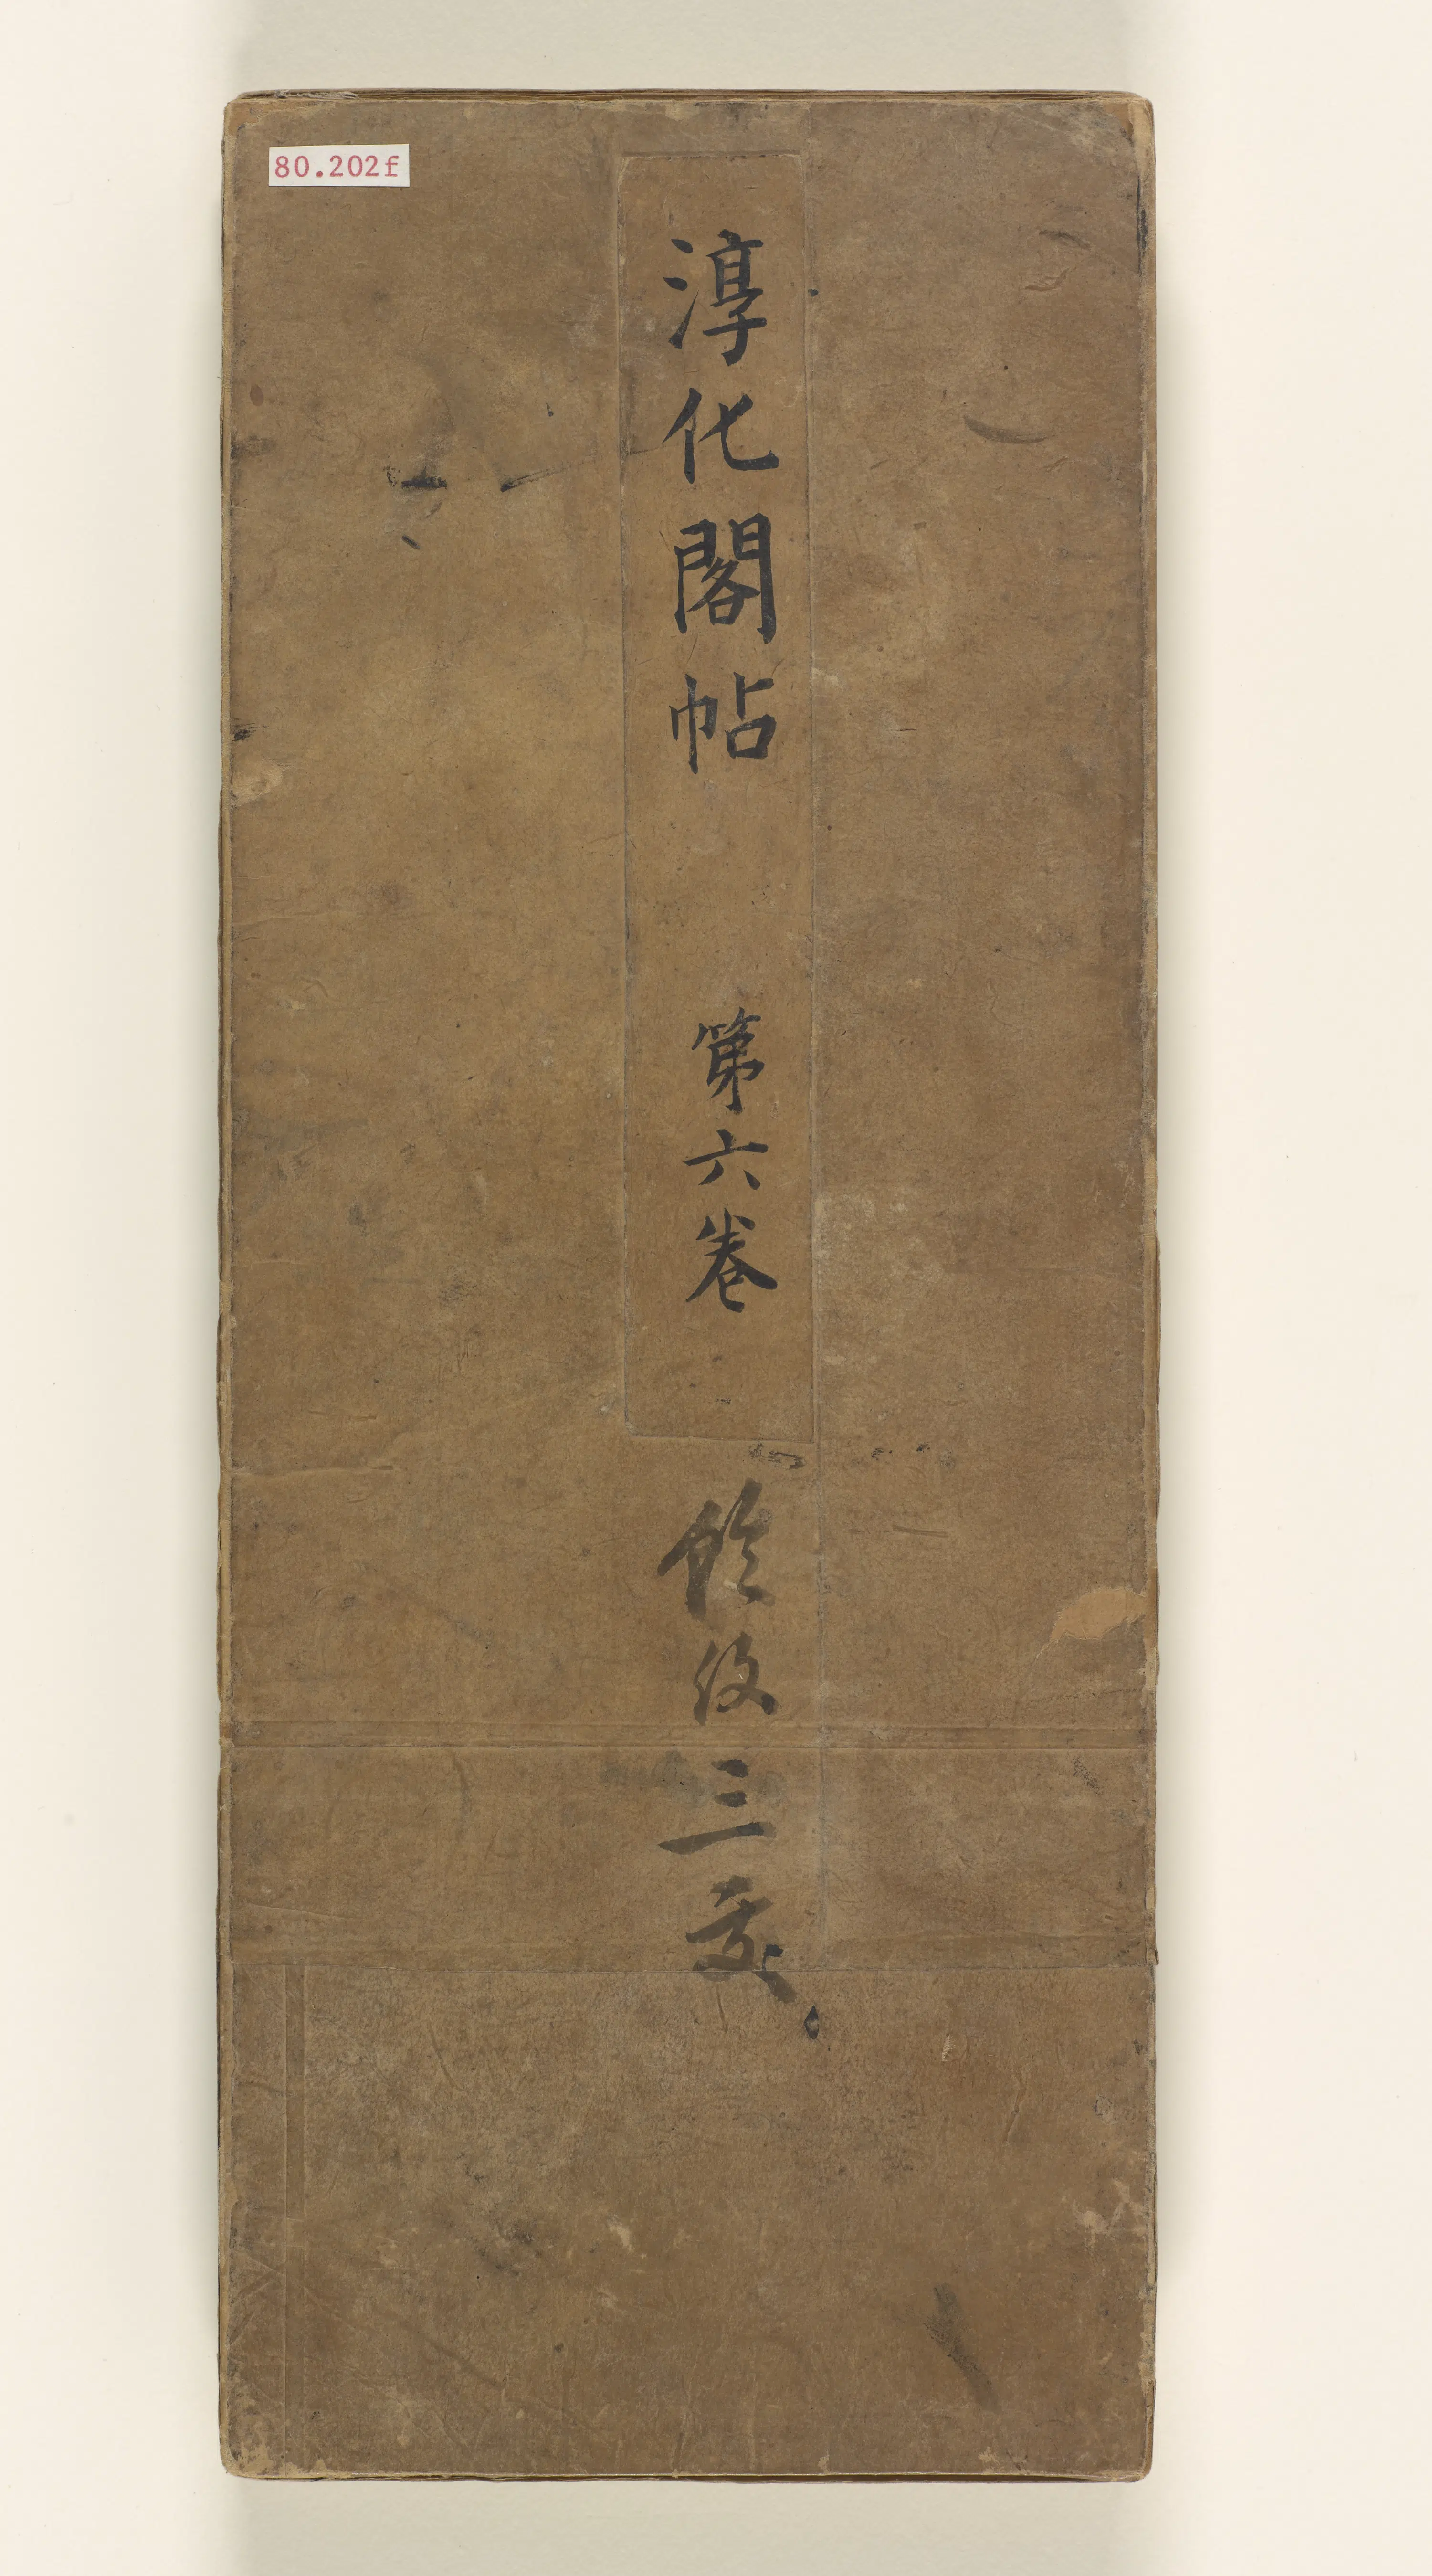 80.202f
淳化閣帖 第六卷
三